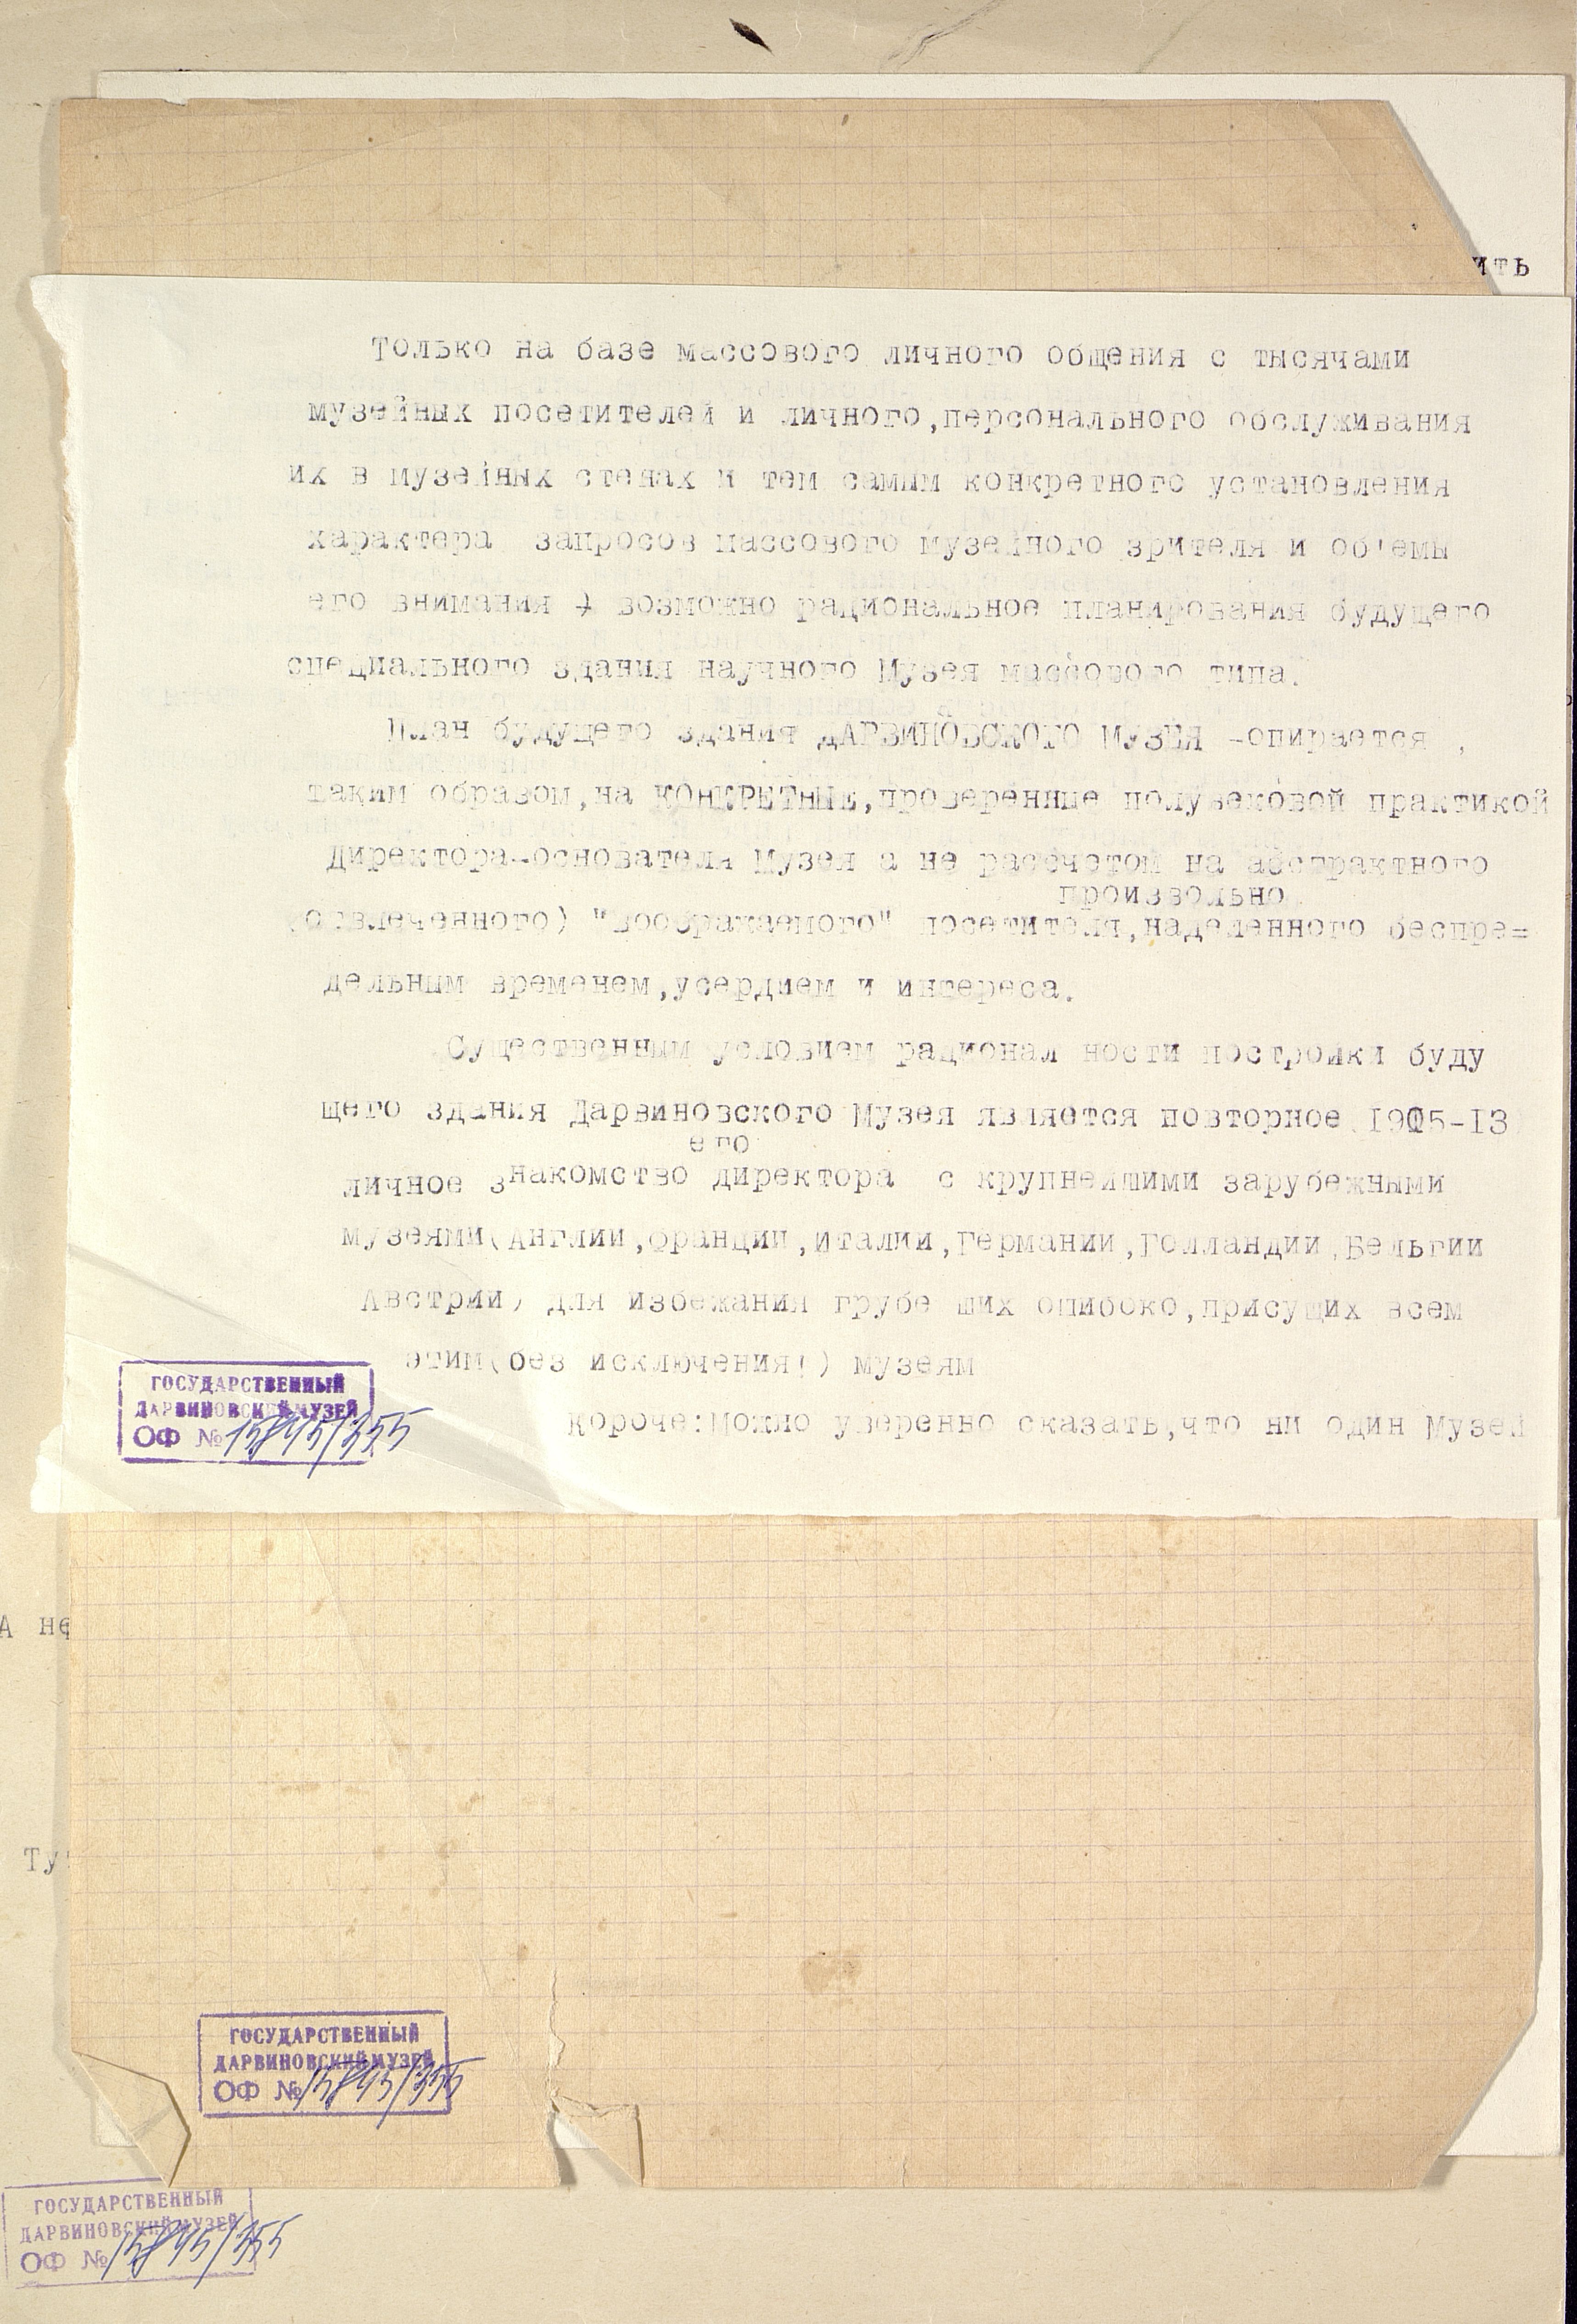 ить
Только на базе массового личного общения с тысячами
музейных посетителей и личного,персонального обслуживания
их в музейных стенах и тем самым конкретного установления
характера запросов массового музейного зрителя и об'емы
его внимания + возможно рациональное планирования будущего
специального здания научного Музея массового типа.
План будущего здания ДАРВИНОВСКОГО МУЗЕЯ -опирается ,
таким образом,на КОНКРЕТНЫЕ,проверенные полувековой практикой
Директора-основателя Музея а не рассчетом на абстрактного
произвольно
(отвлеченного) "воображаемого" посетителя,наделенного беспре=
дельным временем,усердием и интереса.
Существенным условием рационал ности постройки буду
щего здания Дарвиновского Музея является повторное 1905-13
его
личное знакомство директора с крупнейшими зарубежными
музеями(Англии,Франции,Италии,Германии,Голландии,Бельгии
Австрии) для избежания грубе ших ошибоко,присущих всем
этим(без исключения!) музеям
короче:Можно уверенно сказать,что ни один Музей
ГОСУДАРСТВЕННЫЙ
ДАРВИНОВСКИЙ МУЗЕЙ
ОФ № 15845/355
А не
Ту
ГОСУДАРСТВЕННЫЙ
ДАРВИНОВСКИЙ МУЗЕЙ
ОФ № 15845/355
ГОСУДАРСТВЕННЫЙ
ДАРВИНОВСКИЙ МУЗЕЙ
ОФ № 15845/355